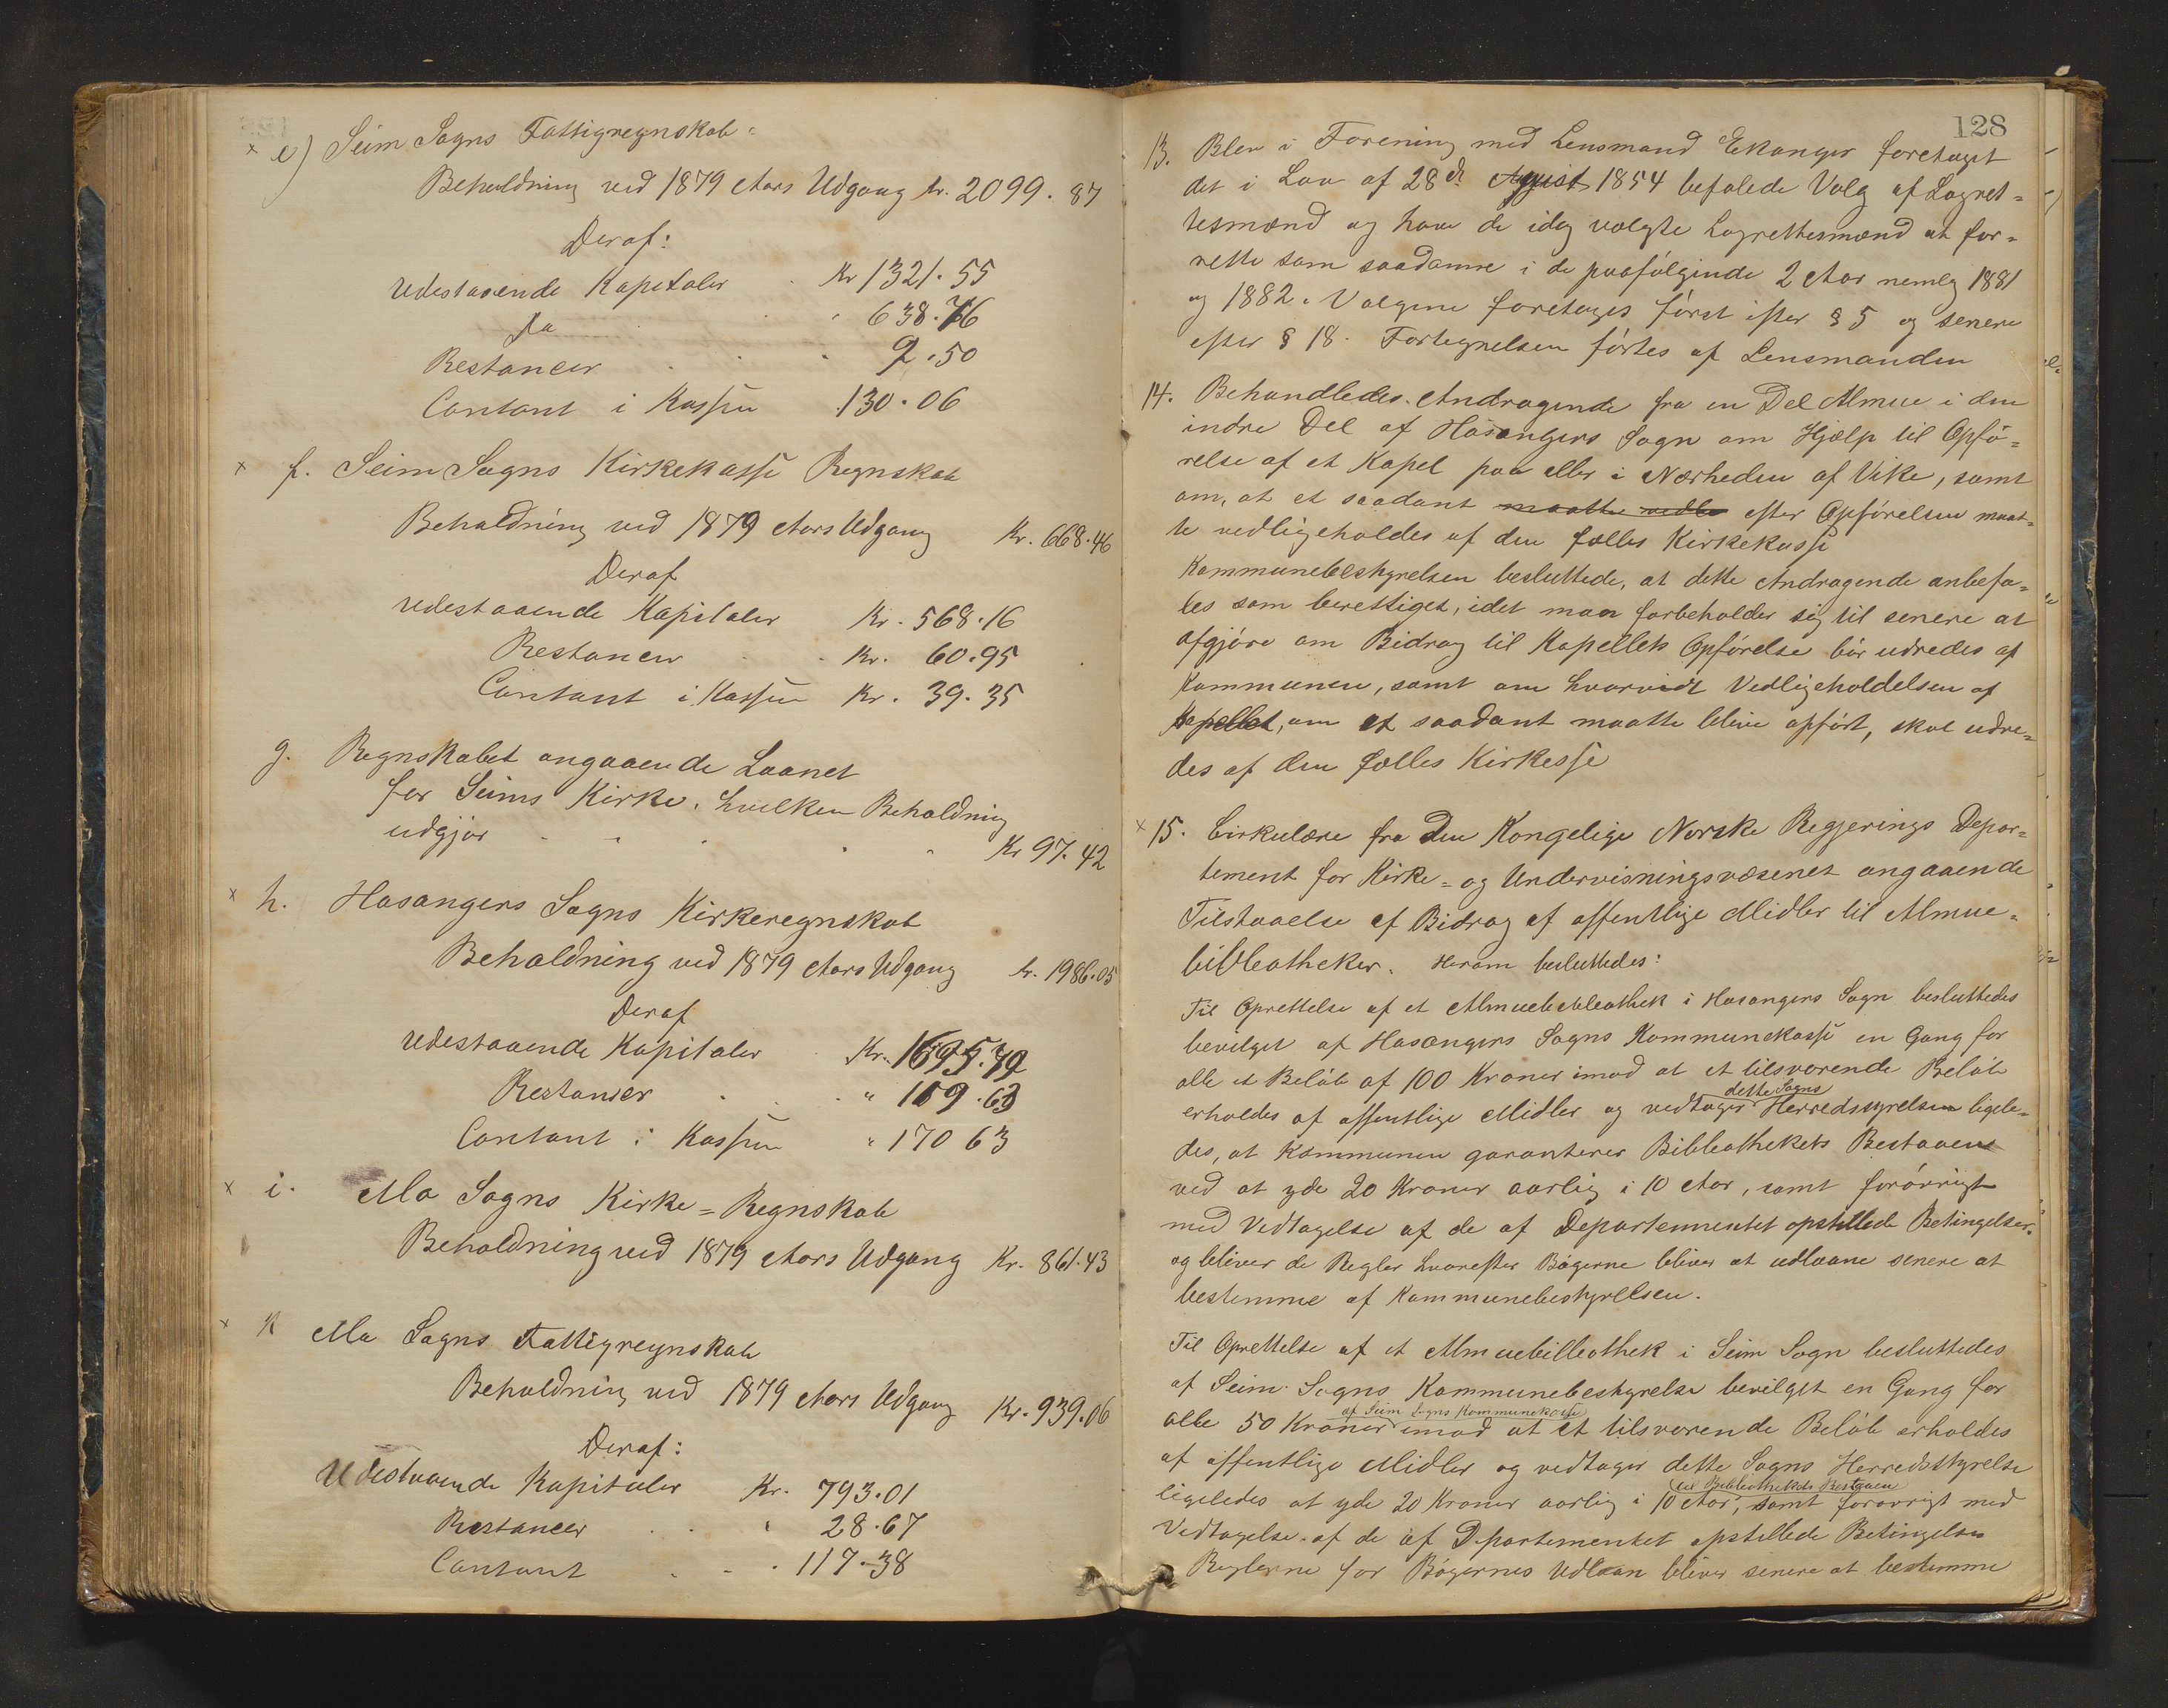 x e) Seim Sogns Fattigregnskab:
Beholdning ved 1879 Aars Udgang kr. 2099.87
Deraf:
udestaaende Kapitaler Kr 1321.55
Do 638.76
Restancer 9.50
Contant i Kassen 130.06
x f. Seim Sogns Kirkekasse Regnskab
Beholdning ved 1879 Aars Udgang Kr. 668.46
Deraf
udestaaende Kapitaler Kr. 568.16
Restancer Kr. 60.95
Contant i Kassen Kr. 39.35
g. Regnskabet angaaende Laanet
for Seims Kirke, hvilken Beholdning
udgjør Kr 97.42
x h. Hosangers Sogns Kirkeregnskab
Beholdning ved 1879 Aars Udgang kr. 1986.05
Deraf
udestaaende Kapitaler Kr. 1695.79
Restancer " 119.63
Contant i Kassen " 170 63
x i. Mo Sogns Kirke=Regnskab
Beholdning ved 1879 Aars Udgang Kr. 861.43
x k Mo Sogns Fattigregnskab
Beholdning ved 1879 Aars Udgang Kr. 939.06
Deraf:
Udestaaende Kapitaler Kr. 793.01
Restancer 28.67
Contant 117.38
128
13. Blev i Forening med Lensmand Ekanger foretaget
det i Lov af 28de August 1854 befalede Valg af Lagret=
tesmænd og have de idag valgte Lagrettesmænd at for=
rette som saadanne i de paafølgende 2 Aar nemlig 1881
og 1882. Valgene foretages først efter § 5 og senere
efter § 18. Fortegnelsen førtes af Lensmanden
14. Behandledes Andragende fra en Del Almue i den
indre Del af Hosangers Sogn om Hjælp til Opfø=
relse af et Kapel paa eller i Nærheden af Vike, samt
om, at et saadant maatte vedli efter Opførelsen maat=
te vedligeholdes af den fælles Kirkekasse
Kommunebestyrelsen besluttede, at dette Andragende anbefa=
les som berettiget, idet man forbeholder sig til senere at
afgjøre om Bidrag til Kapellets Opførelse bør udredes af
Kommunen, samt om hvorvidt Vedligeholdelsen af
Kapellet, om et saadant maatte blive opført, skal udre=
des af den fælles Kirkesse
x 15. Cirkulære fra Den Kongelige Norske Regjerings Depar=
tement for Kirke= og Undervisningsvæsenet angaaende
Tilstaaelse af Bidrag af offentlige Midler til Almue=
bibliotheker. Herom besluttedes:
Til Oprettelse af et Almuebibliothek i Hosangers Sogn besluttedes
bevilget af Hosangers Sogns Kommunekasse en Gang for
alle et Beløb af 100 Kroner imod at et tilsvarende Beløb
dette Sogns
erholdes af offentlige Midler og vedtager Herredsstyrelsen ligele=
des, at Kommunen garanterer Bibliothekets Bestaaen
ved at yde 20 Kroner aarlig i 10 Aar, samt forøvrigt
med Vedtagelse af de af Departementet opstillede Betingelser,
og bliver de Regler hvorefter Bøgerne bliver at udlaane senere at
bestemme af Kommunebestyrelsen.
Til Oprettelse af et Almuebibliothek i Seim Sogn besluttedes
af Seim Sogns Kommunebestyrelse bevilget en Gang for
af Seim Sogns Kommunekasse
alle 50 Kroner imod at et tilsvarende Beløb erholdes
af offentlige Midler og vedtager dette Sogns Herredsstyrelse
til Bibliothekets Bestaaen
ligeledes at yde 20 Kroner aarlig i 10 Aar, samt forøvrigt med
Vedtagelse af de af Departementet opstillede Betingelser
Reglerne for Bøgernes Udlaan bliver senere at bestemme